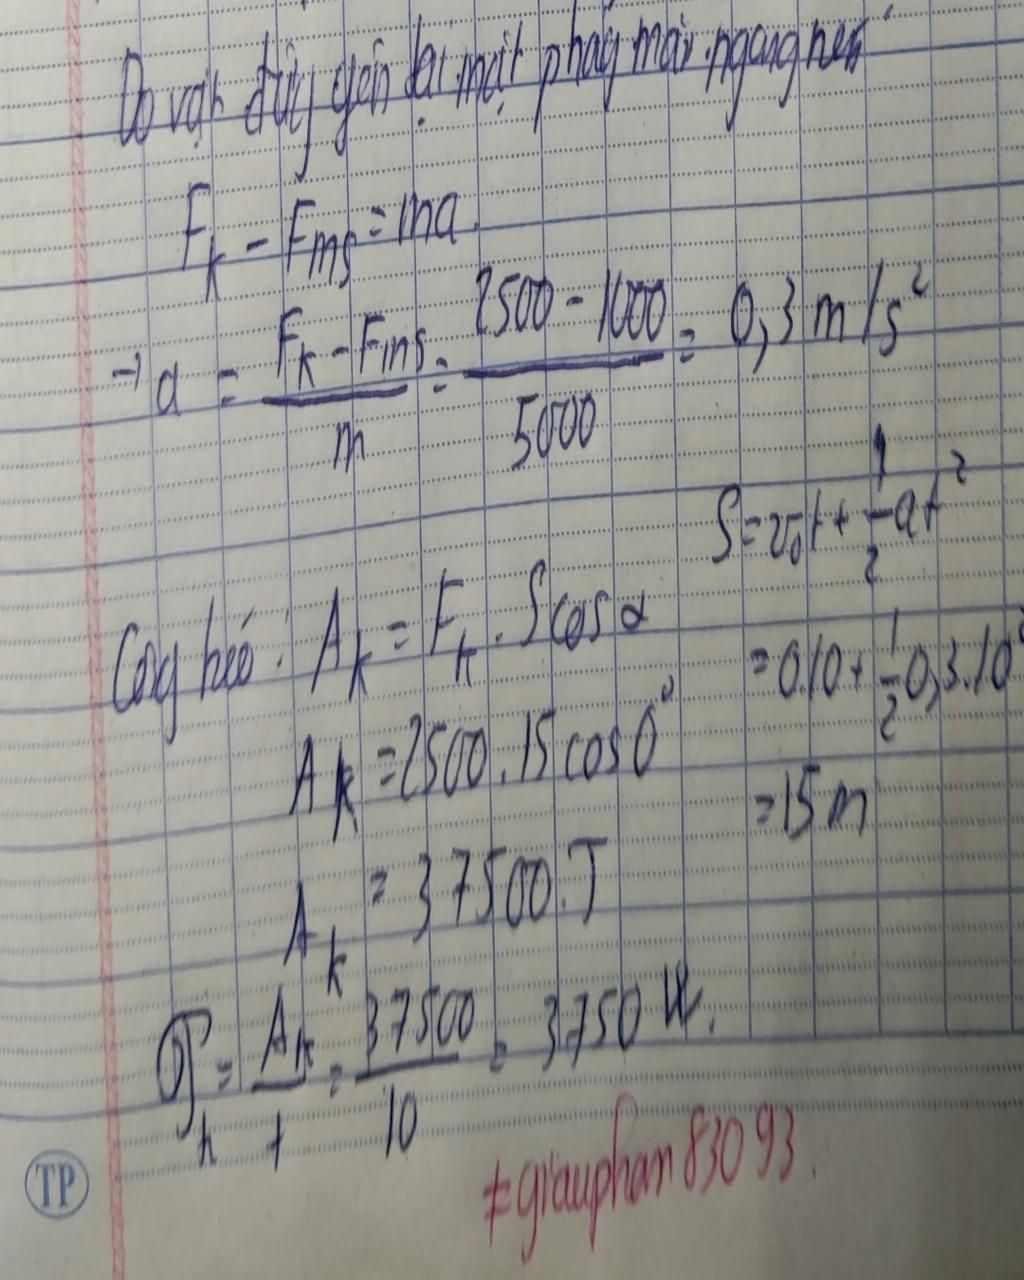 Do vật đứng yên tại mặt phẳng nằm ngang nên
F_k - F_ms = ma.
→ a = (F_k - F_ms)/m = (2500 - 1000)/5000 = 0,3 m/s²
S = v₀t + 1/2 at²
= 0.10 + 1/2 0,3.10²
= 15 m
Công kéo: A_k = F_k . S cos α
A_k = 2500.15 cos 0°
A_k = 37500.J
𝒫_k = A_k/t = 37500/10 = 3750 W.
TP
#giauphan83093.